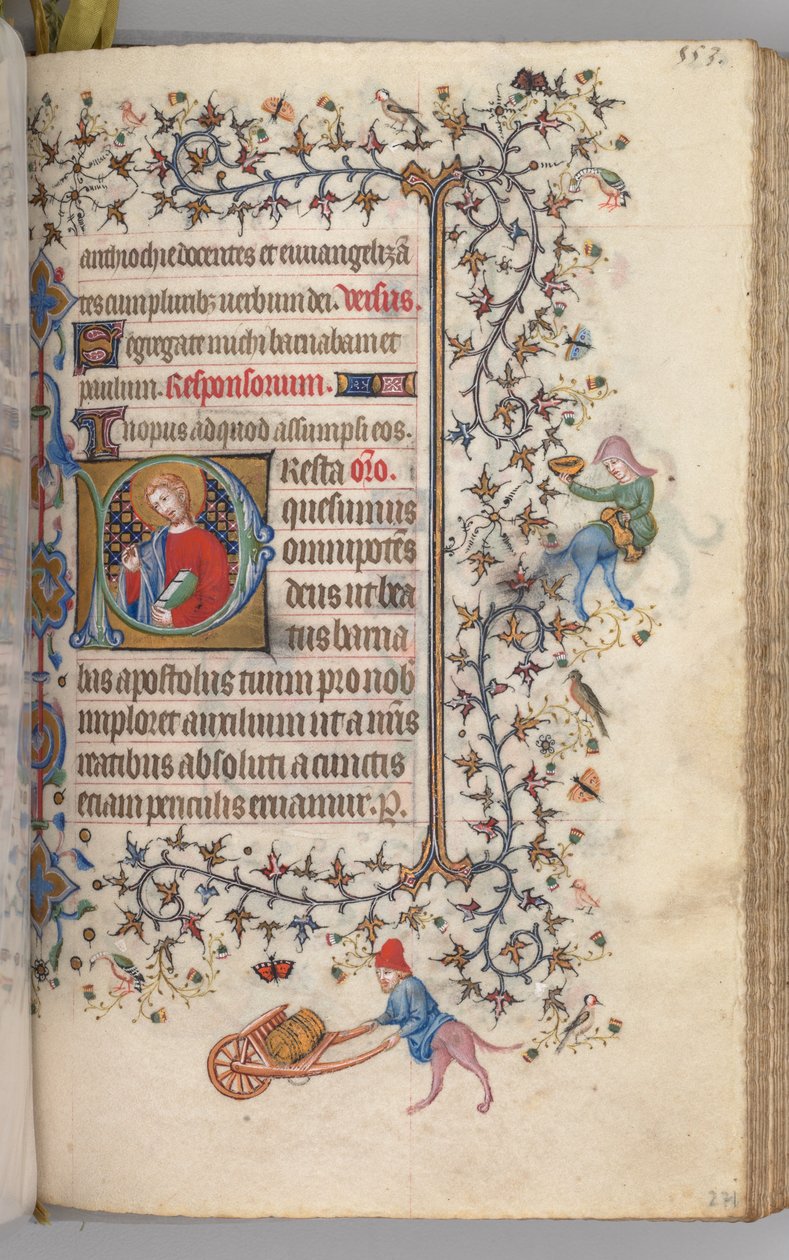 553.
anthiochie docentes et euuangelizā
tes cum pluribꝫ uerbum dei. versus.
Segregate michi barnabam et
paulum. Responsorium.
In opus ad quod assumpsi eos.
Presta or̄o.
quesumus
omnipotēs
deus ut bea
tus barna
bas apostolus tuum pro nob
imploret auxilium ut a nr̄is
reatibus absoluti a cunctis
etiam periculis eruamur. P.
271